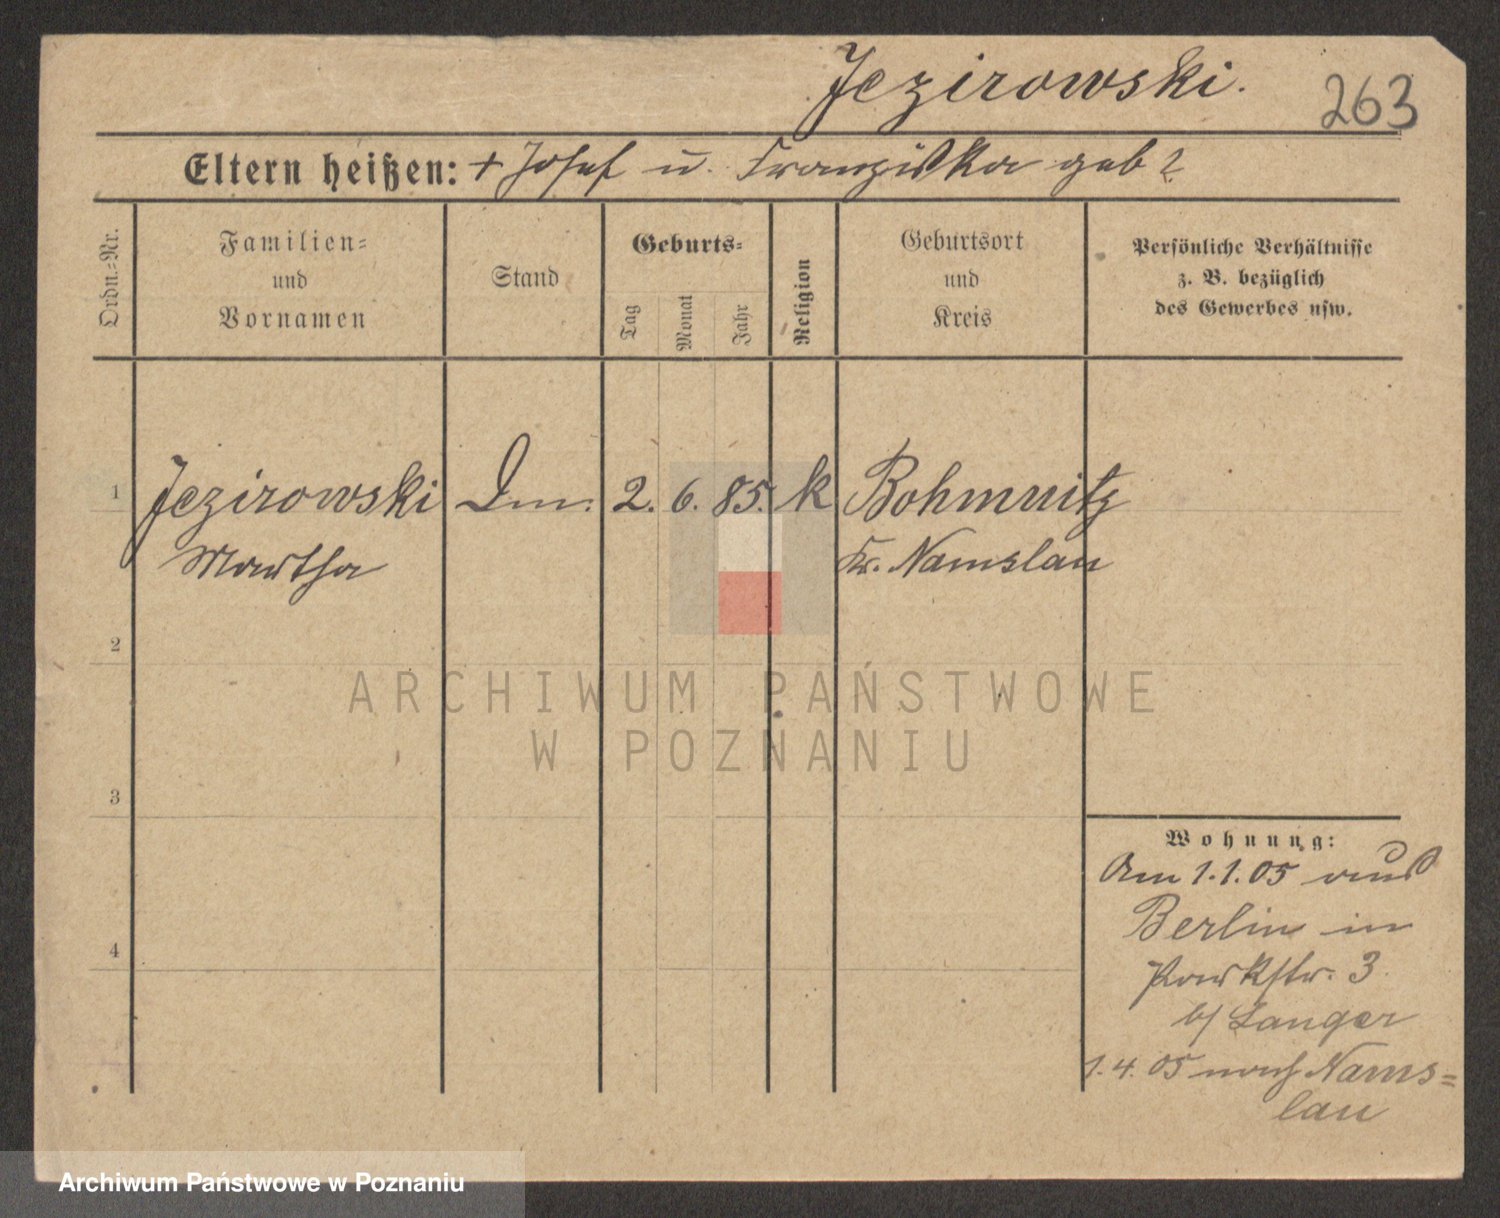 Jezirowski.
263
Eltern heißen: + Josef u. Franziska geb ?
Ordn.-Nr.
Familien-
und
Vornamen
Stand
Geburts-
Tag
Monat
Jahr
Religion
Geburtsort
und
Kreis
Persönliche Verhältnisse
z. B. bezüglich
des Gewerbes usw.
1 Jezirowski 2. 6. 85. k Bohmwitz
Martha Kr. Namslau
2
3
4
Wohnung:
Am 1.1.05 aus
Berlin in
Parkstr. 3
b/ Langer
1.4.05 nach Nams=
lau
ARCHIWUM PAŃSTWOWE
W POZNANIU
Archiwum Państwowe w Poznaniu